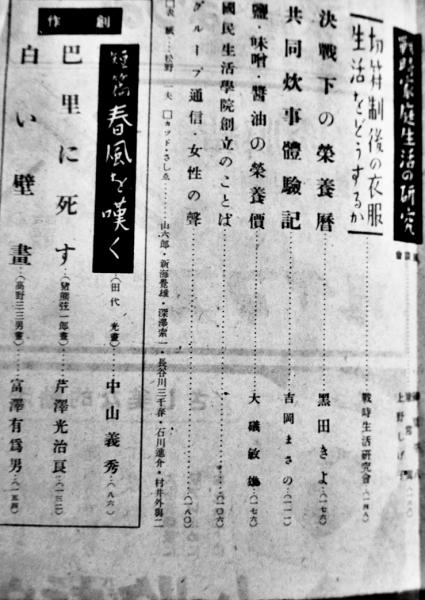 戰時家庭生活の研究
切符制後の衣服
生活をどうするか………戰時生活研究會…(一四八)
決戰下の榮養曆………黑田きよ…(一七六)
共同炊事體驗記………吉岡まさの…(一一二)
鹽・味噌・醬油の榮養價………大磯敏雄…(一七六)
國民生活學院創立のことば………(一〇六)
グループ通信・女性の聲………(一八〇)
□表紙……松野一夫 □カット・さしゑ……山六郎・新海覺雄・深澤索一・長谷川三千春・石川進介・村井外與二
創作
短篇 春風を嘆く…(田代光畫)…中山義秀…(八六)
巴里に死す…(猪熊弦一郎畫)…芹澤光治良…(一三二)
白い壁畫…(高野三三男畫)…富澤有爲男…(一五四)